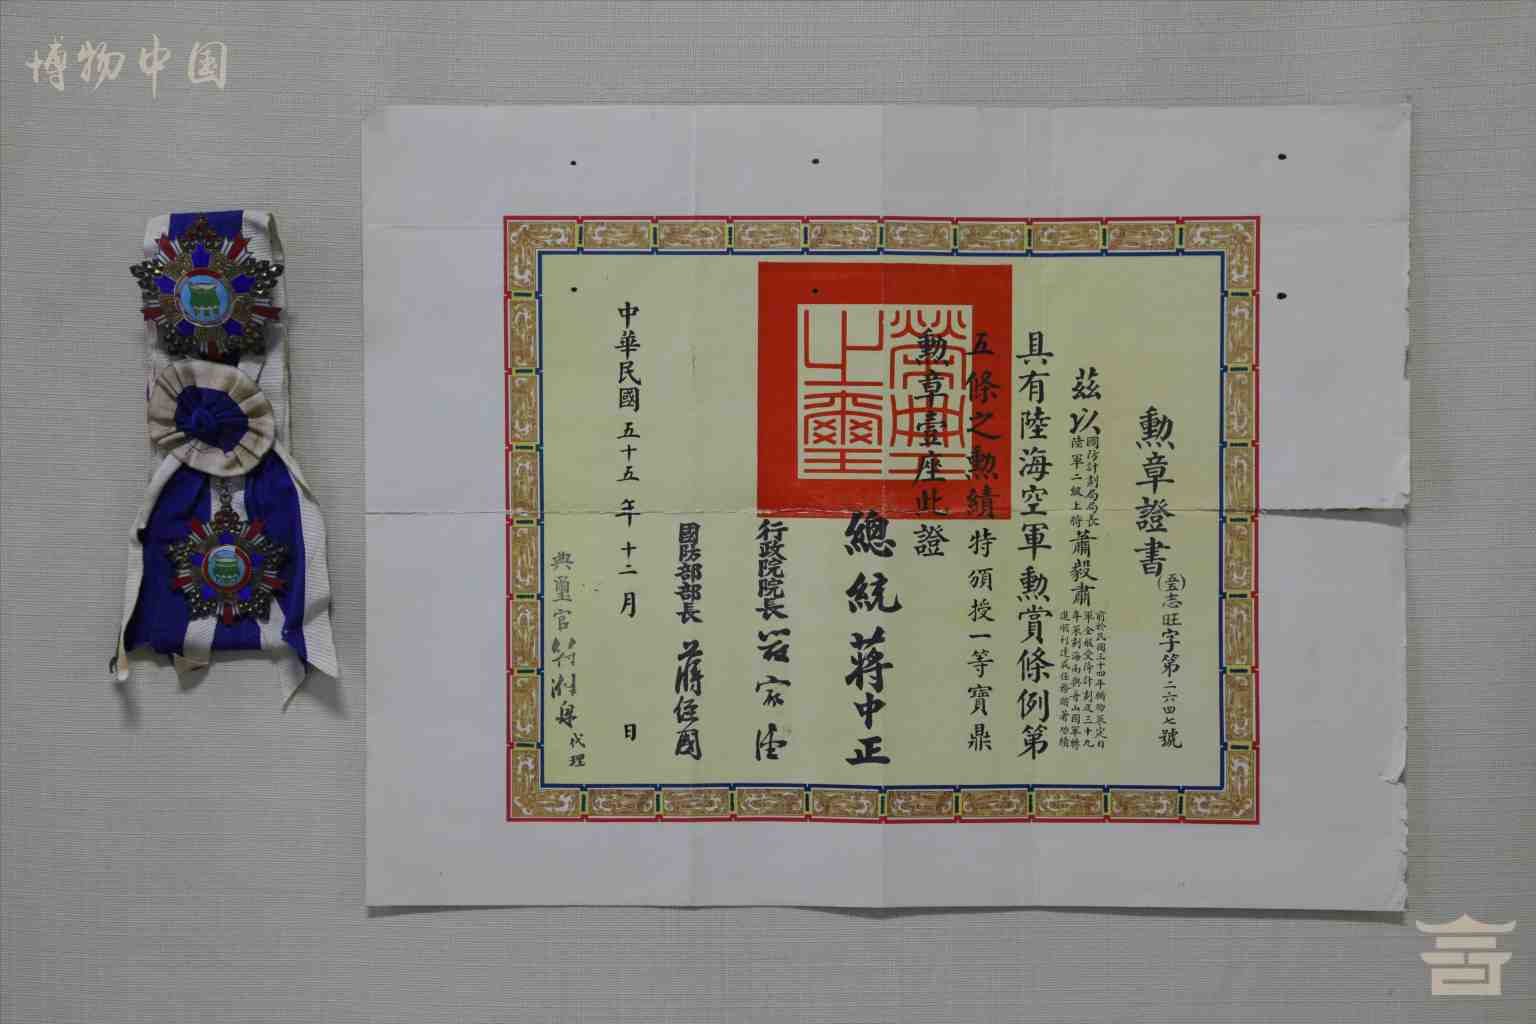 博物中国
勳章證書
志旺字第二六四七號
茲以國防計劃局局長陸軍二級上將蕭毅肅
前於民國三十四年
年策劃海南與舟山國軍轉
進順利達成任務
具有陸海空軍勳賞條例第
五條之勳績特頒授一等寶鼎
勳章壹座此證
榮典之璽
總統蔣中正
行政院院長嚴家淦
國防部部長蔣經國
中華民國五十五年十二月 日
典璽官
代理